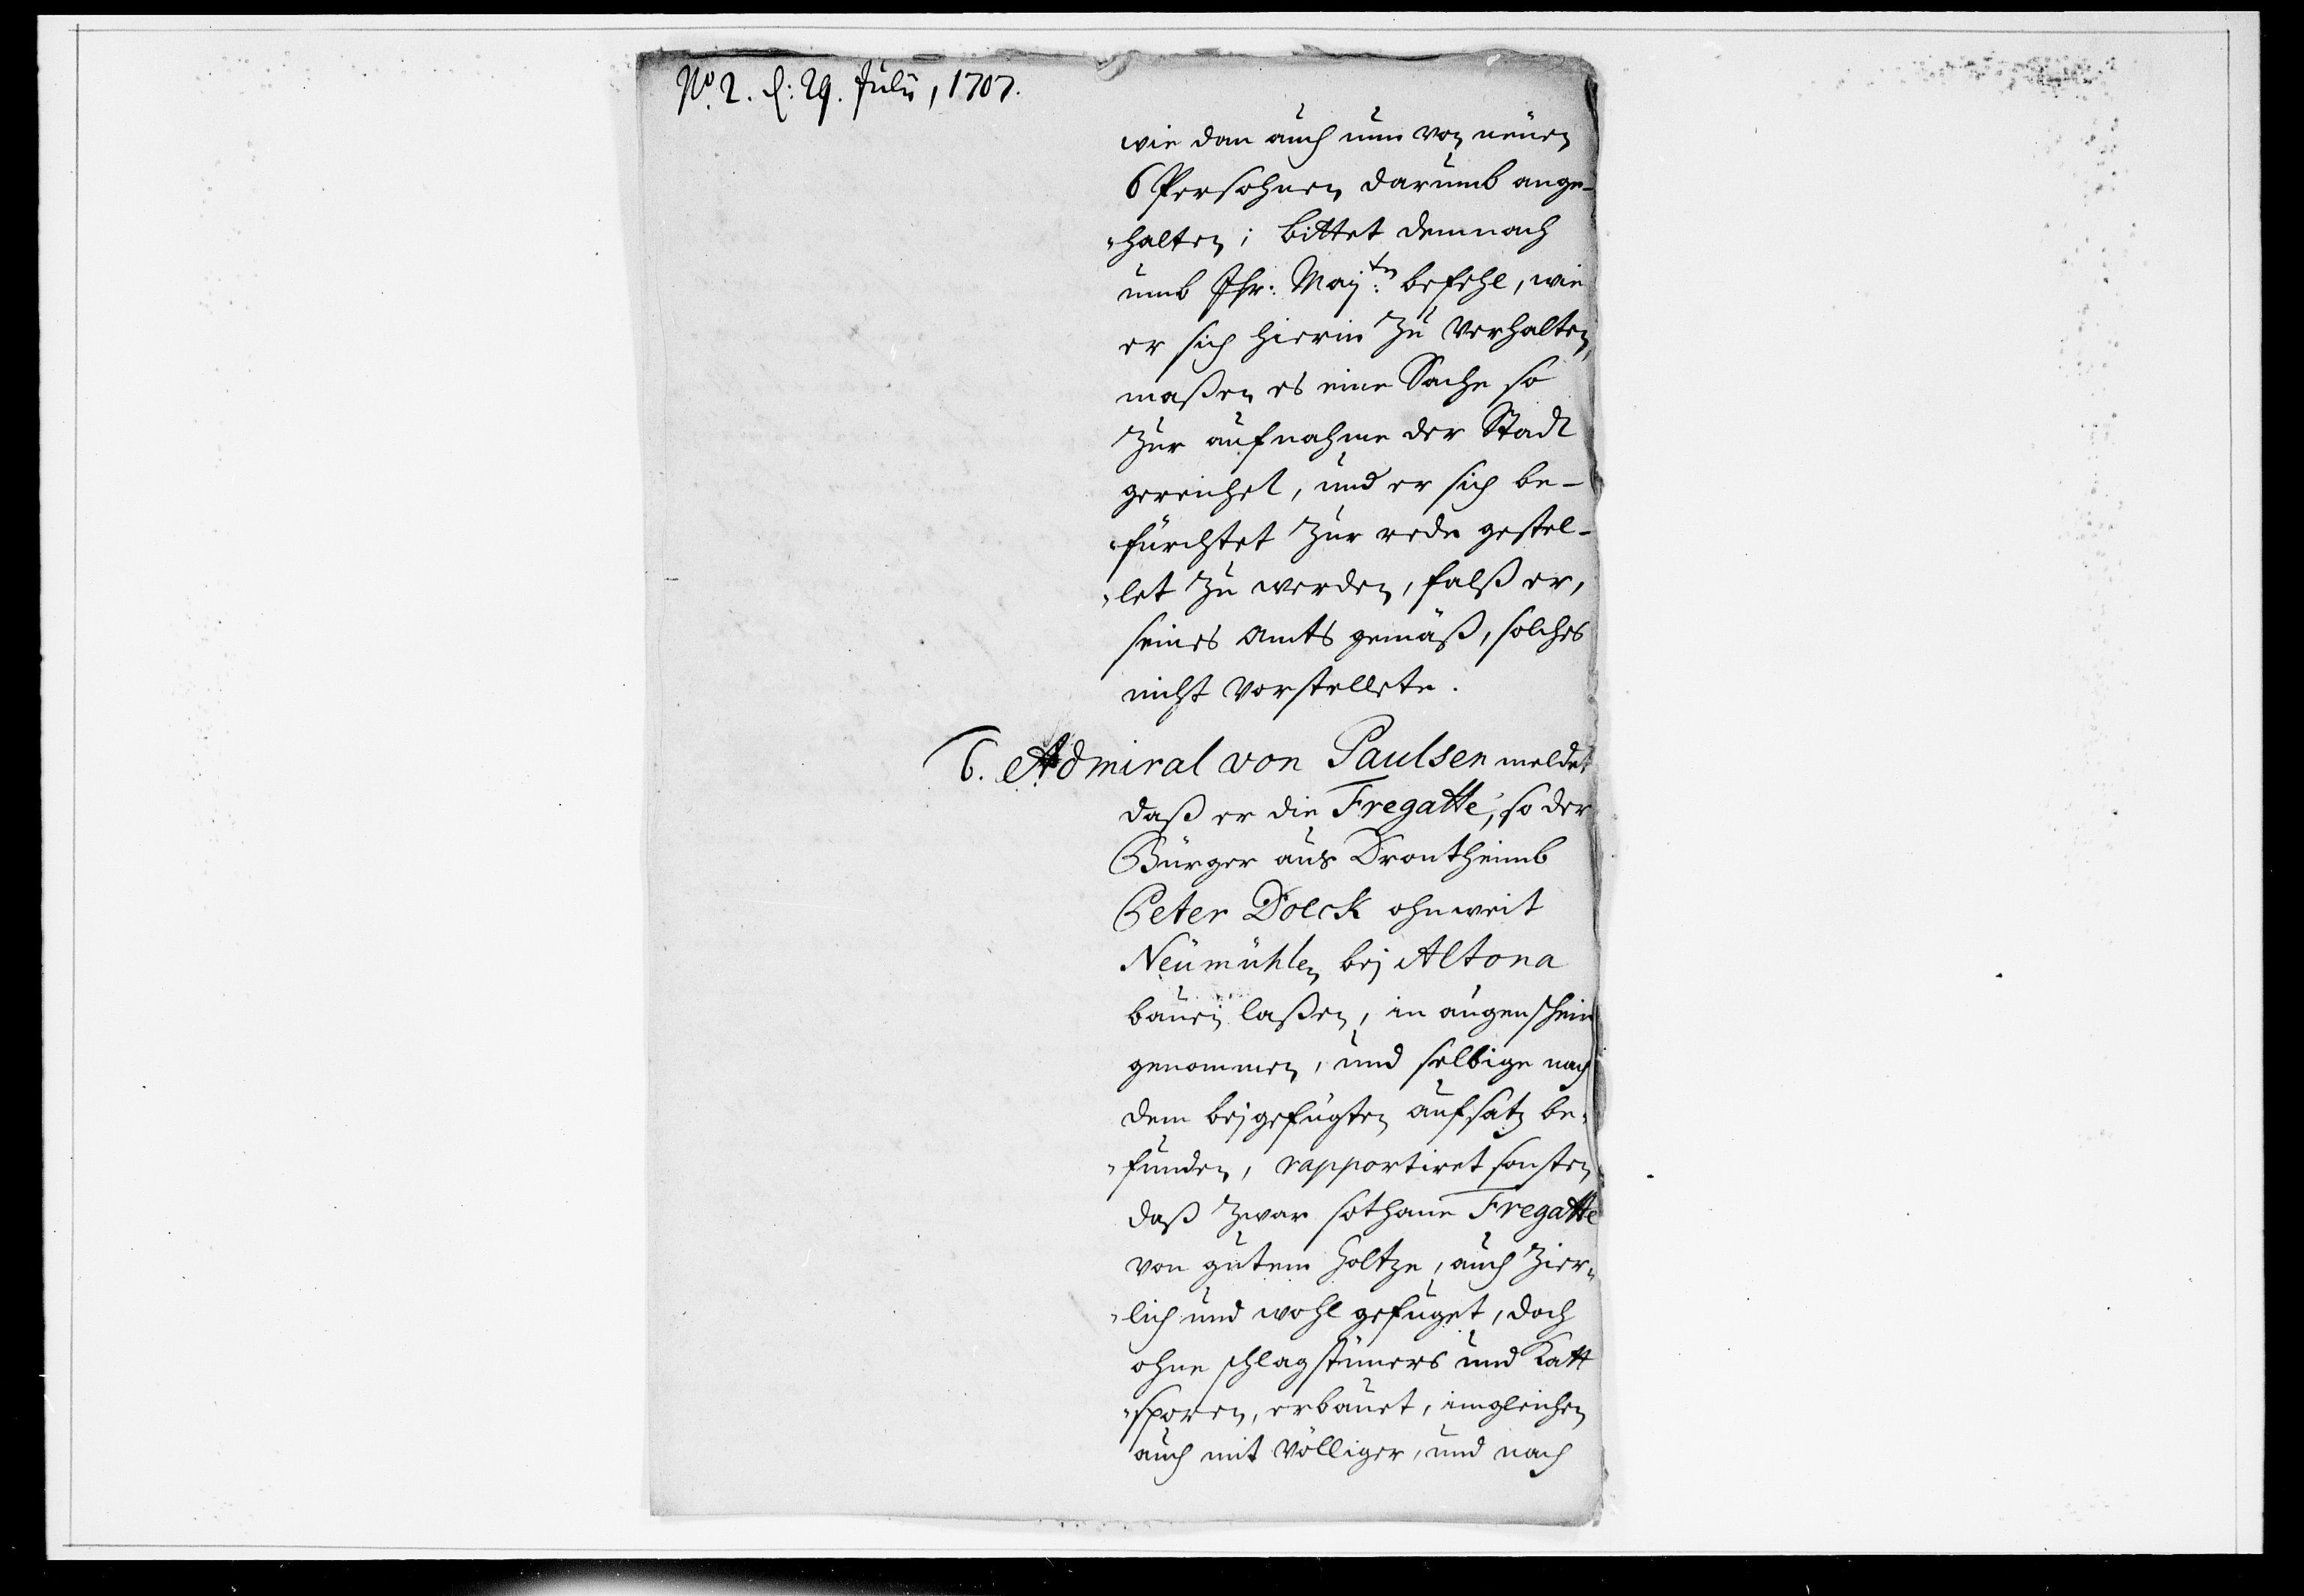 No. 2. d: 29. Julii, 1707.
wie dan auch nun von neüen
6 Persohnen darumb ange-
halten; bittet demnach
umb Ihr: Maj:ten befehl, wie
er sich hierin zu verhalten,
maßen es eine Sache so
zur aufnahme der Stadt
gereichet, und er sich be-
fürchtet zur rede gestel-
let zu werden, falß er,
seines Amts gemäß, solches
nicht vorstellete.
6. Admiral von Paulsen meldet
daß er die Fregatte, so der
Bürger aus Drontheimb
Peter Dolck ohnweit
Neümühlen bej Altona
bauen laßen, in augenschein
genommen, und selbige nach
dem bejgefügten aufsatz be-
funden, rapportiret sonsten
daß zwar sothane Fregatte
von gutem Holtze, auch zier-
lich und wohl gefüget, doch
ohne und Katt
sporen, erbauet, imgleichen
auch mit völliger, und nach